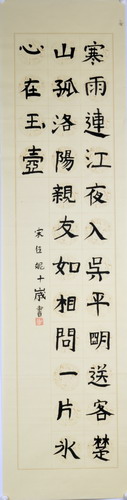 寒雨連江夜入吳平明送客楚
山孤洛陽親友如相問一片氷
心在玉壺
宋任妮十歲書